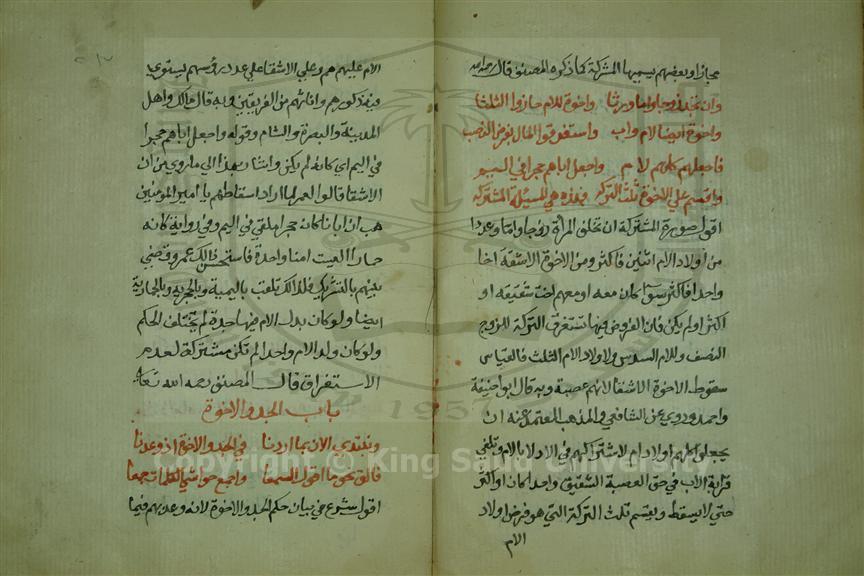 مجازا وبعضهم يسميها المشركة كما ذكره المصنف قال رحمه الله
وان تجد زوجا واما ورثا واخوة للام حازوا الثلثا
واخوة ايضا لام واب واستغرقوا المال بفرض النصب
فاجعلهم كلهم لام واجعل اباهم حجرا في اليم
واقسم على الاخوة ثلث التركه فهذه هي المسئلة المشتركه
اقول صورة المشتركة ان تخلف المرأة زوجا واما وعددا
من اولاد الام اثنين فاكثر ومن الاخوة الاشقة اخا
واحدا فاكثر سوآ كان معه او معهم اخت شقيقه او
اكثر او لم يكن فان الفروض فيها تستغرق التركة للزوج
النصف وللام السدس ولاولاد الام الثلث فالقياس
سقوط الاخوة الاشقا لانهم عصبة وبه قال ابو حنيفة
واحمد وروي عن الشافعي والمذهب المعتمد عنه ان
يجعلوا كلهم اولاد ام لاشتراكهم في الادلا بالام وتلغي
قرابة الاب في حق العصبة الشقيق واحدا كان او اكثر
حتي لا يسقط ويقسم ثلث التركة التي هو فرض اولاد
الام
الام عليهم هم وعلي الاشقا علي عدد رؤسهم يستوي
فيه ذكورهم واناثهم من الفريقين وبه قال مالك واهل
المدينة والبصرة والشام وقوله واجعل اباهم حجرا
في اليم اي كانه لم يكن واشار بهذا الي ما روي من ان
الاشقا قالوا لعمر لما اراد اسقاطهم يا امير المومنين
هب ان ابانا كان حجرا ملقي في اليم وفي رواية كانه
حمارا اليست امنا واحدة فاستحسن ذالك عمر وقضي
بينهم بالتشريك فلذالك تلقب باليمية وبالحجريه وبالحمارية
ايضا ولو كان بدل الام فيها جدة لم يختلف الحكم
ولو كان ولد الام واحدا لم تكن مشتركة لعدم
الاستغراق قال المصنف رحمه الله تعالى
باب الجد والاخوة
ونبتدي الان بما اردنا في الجد والاخوة اذ وعدنا
فالق نحو ما اقول السمعا واجمع حواشي الكلمات جمعا
اقول شرع في بيان حكم الجد والاخوة لانه وعد بهم فيما
Copyright © King Saud University
1957